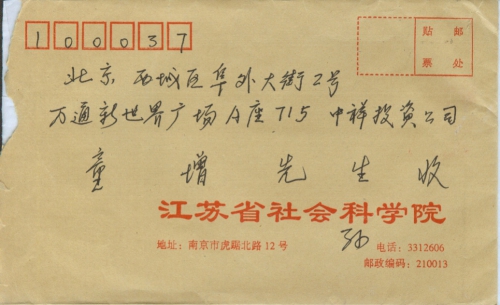 100037
贴 邮
票 处
北京 西城区阜外大街2号
万通新世界广场A座715 中祥投资公司
童增先生收
江苏省社会科学院
地址：南京市虎踞北路12号 电话：3312606
邮政编码：210013